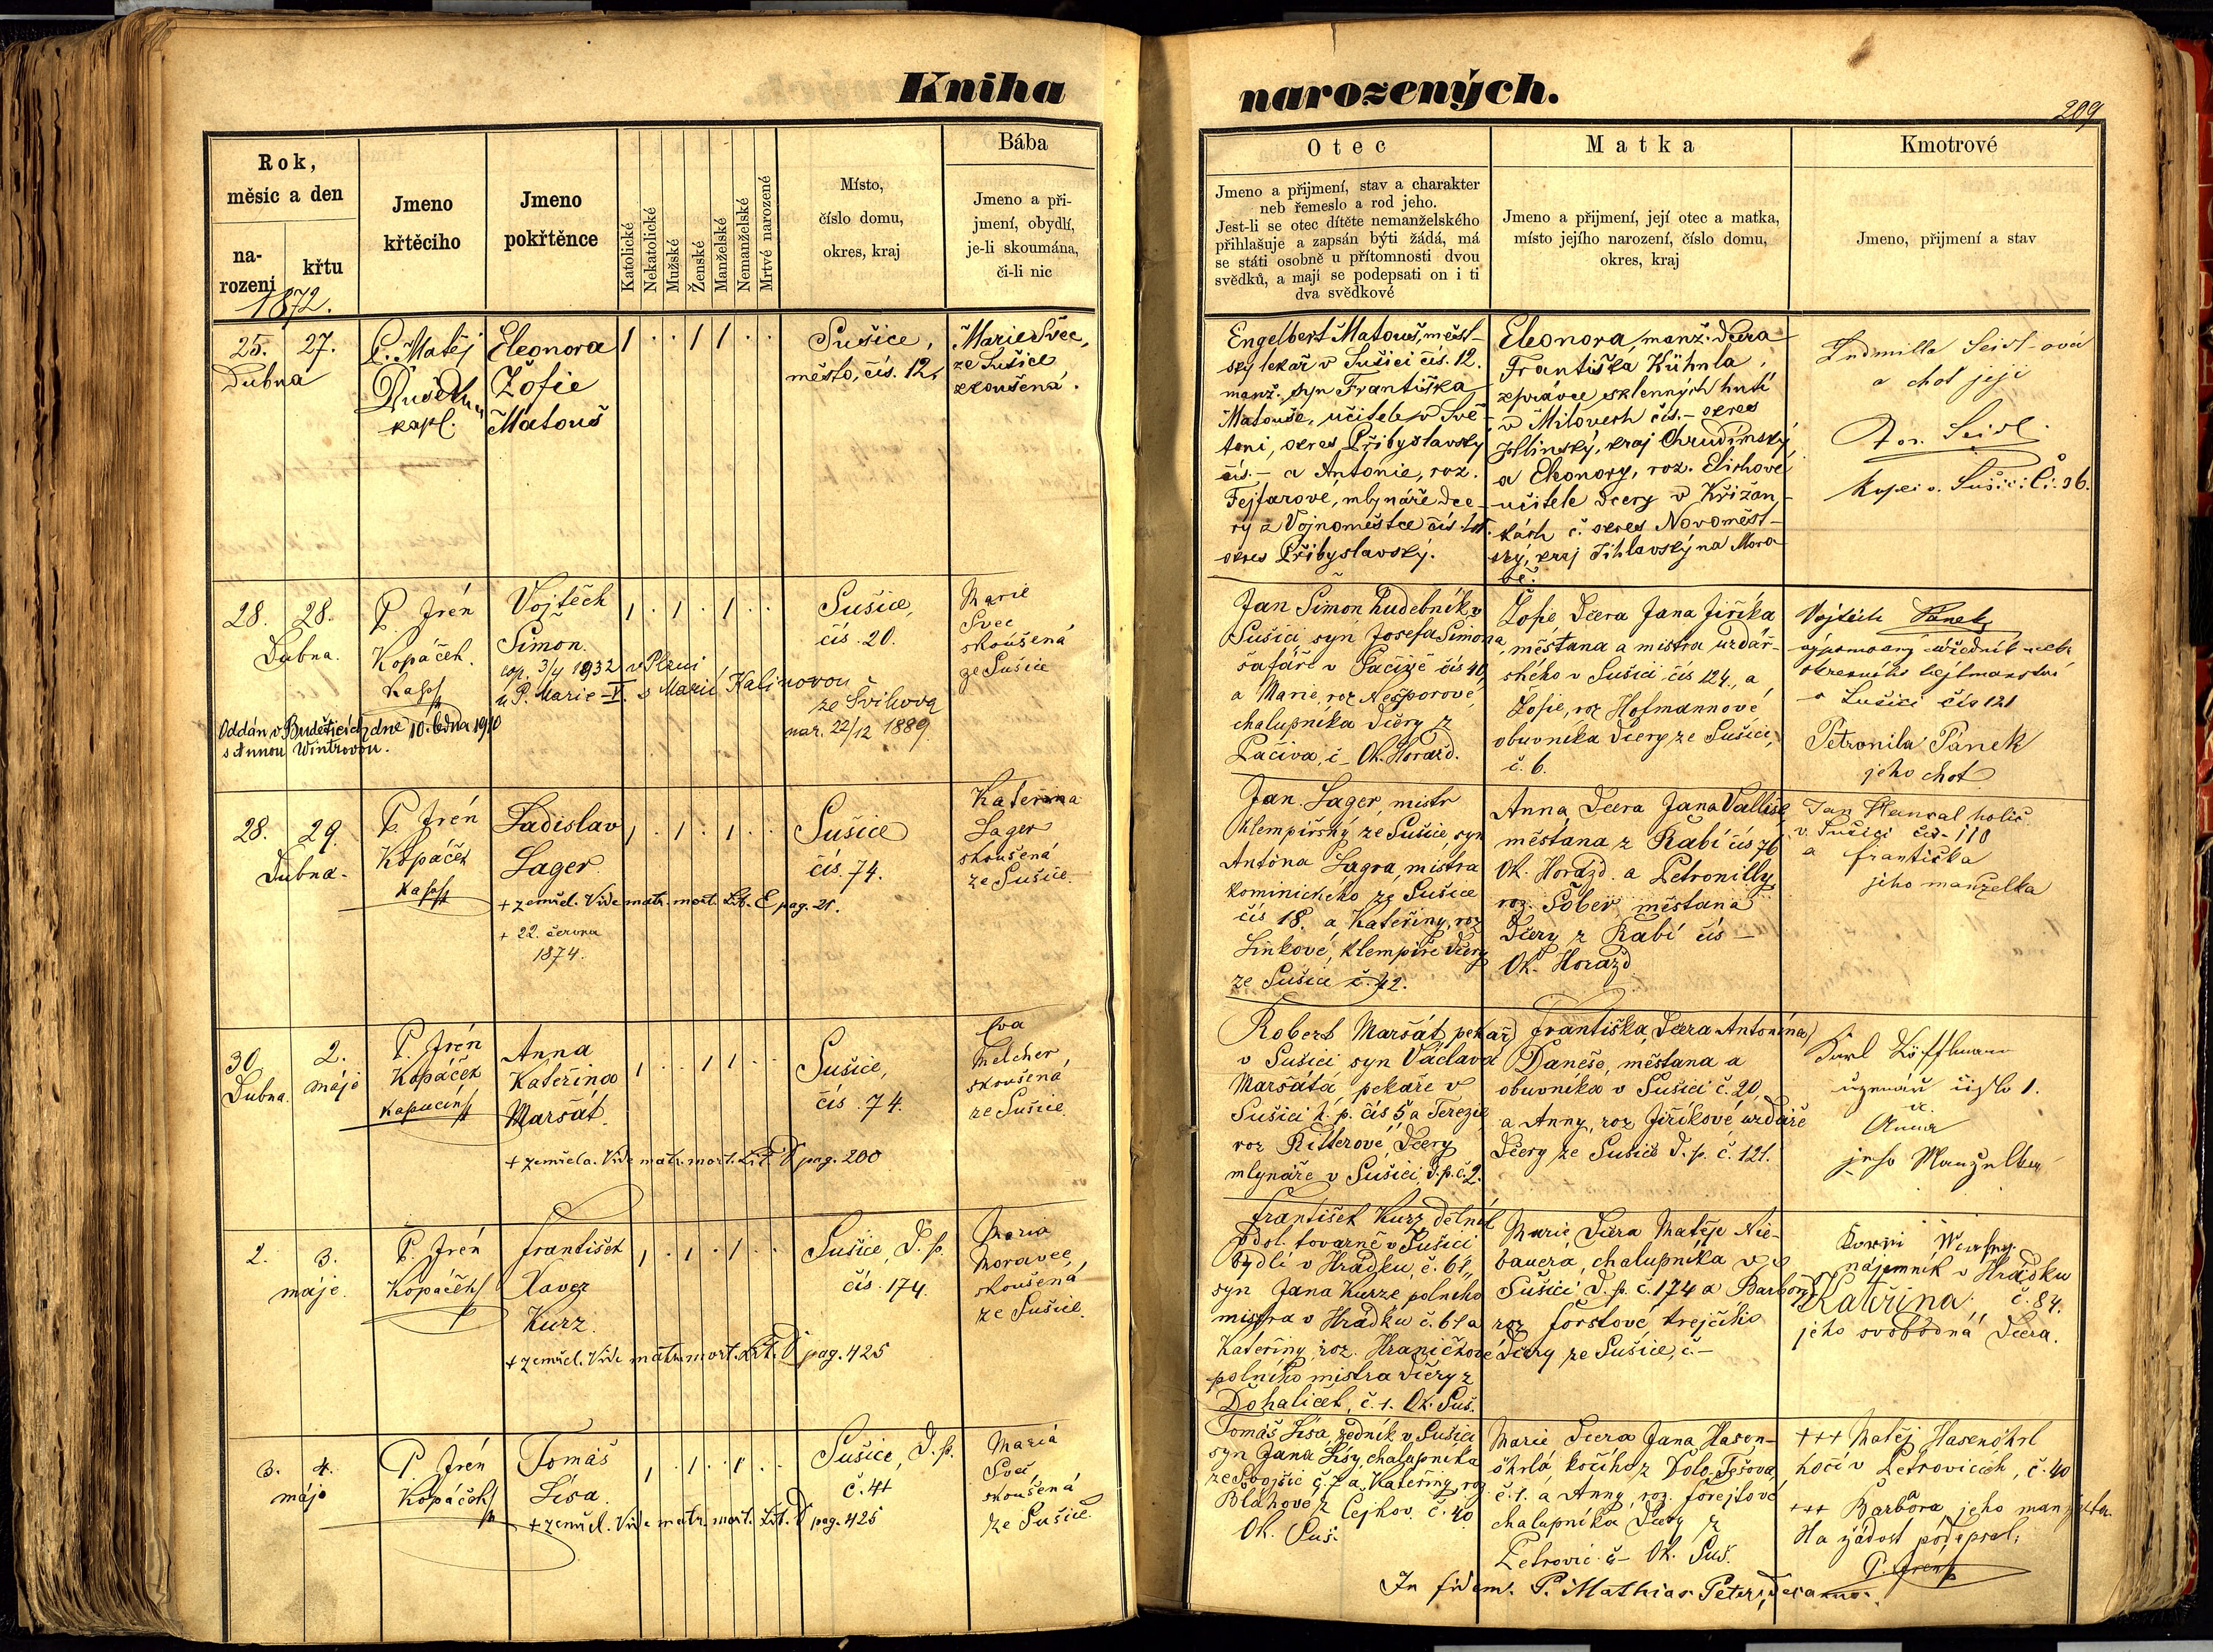 Kniha
narozených.
209
Rok,
měsíc a den
na-
rozeni
křtu
1872.
Jmeno
křtěcího
Jmeno
pokřtěnce
Katolické
Nekatolické
Mužské
Ženské
Manželské
Nemanželské
Mrtvé narozené
Místo,
číslo domu,
okres, kraj
Bába
Jmeno a při-
jmení, obydlí,
je-li skoumána,
či-li nic
Otec
Jmeno a přijmení, stav a charakter
neb řemeslo a rod jeho.
Jest-li se otec dítěte nemanželského
přihlašuje a zapsán býti žádá, má
se státi osobně u přítomnosti dvou
svědků, a mají se podepsati on i ti
dva svědkové
Matka
Jmeno a přijmení, její otec a matka,
místo jejího narození, číslo domu,
okres, kraj
Kmotrové
Jmeno, přijmení a stav
25. 27.
Dubna
P. Matěj
kapl.
Eleonora
Žofie
Matouš
1 . . 1 1 . .
Sušice,
město, čís. 12.
Marie Švec,
ze Sušice
zkoušená.
Engelbert Matouš, měst-
ský lekař v Sušici čís. 12.
manž. syn Františka
Matouše, učitele v Svě-
, okres Přibyslavský
čís. – a Antonie, roz.
Fejfarové, mlynáře dce-
ry z Vojnoměstce čís.
okres Přibyslavský.
Eleonora, manž. dcera
Františka Kühnla,
zprávce sklenných hutí
v Milovech čís. – okres
Hlinský, kraj Chrudímský,
a Eleonory, roz.
učitele dcery v Křižan-
kách č. okres Novoměst-
ský, kraj Jihlavský na Mora-
vě.
Ludmilla Seidl-ová
a chot její
Seidl.
v Sušici Č: 36.
28. 28.
Dubna.
P. Irén
Kopáček.
Vojtěch
Šimon.
cop. 3/4 1932 v Plzni
u P. Marie – s Marií Kalinovou
ze Švihova
nar. 22/12 1889.
Oddán v Budětících dne 10. ledna 1910
s Annou Wintrovou.
1 . 1 . 1 . .
Sušice,
čís. 20.
Marie
Švec
skoušená
ze Sušice
Jan Šimon hudebník v
Sušici syn Josefa Šimona,
šafáře v čís 40,
a Marie, roz Nešporové,
chalupníka dcery z
Pačiva, č – Ok. Horažd.
Žofie, dcera Jana Jiříka
, měšťana a mistra uzdář-
ského v Sušici čís 124., a
Žofie, roz Hofmannové
obuvníka dcery ze Sušice,
č. 6.
Vojtěch Pánek,
výpomocný úředník
okresního hejtmanství
v Sušici čís 121
Petronila Pánek
jeho choť
28. 29.
Dubna.
P. Irén
Kopáček
Ladislav
Lager
1 . 1 . 1 . .
+ zemřel. Vide matr. mort. Lit. E pag. 21.
+ 22. června
1874.
Sušice
čís. 74.
Kateřina
Lager
skoušená
ze Sušice.
Jan Lager, mistr
klempířský ze Sušice, syn
Antóna Lagra, mistra
kominického ze Sušice
čís 18. a Kateřiny, roz
Linkové, klempíře dcery
ze Sušice č. 42.
Anna, dcera Jana
měšťana z Rabí čís 76
Ok. Horažd. a Petronilly
roz. Šober, měšťana
dcery z Rabí čís –
Ok. Horažd
Jan holič
v Sušici čís – 110
a františka
jeho manželka
30 2.
Dubna. máje
P. Irén
Kopáček
kapucín
Anna
Kateřina
Maršát.
1 . . 1 1 . .
+ zemřela. Vide matr. mort. Lit. D pag. 200
Sušice,
čís. 74.
Eva
Melcher,
skoušená
ze Sušice.
Robert Maršát, pekař
v Sušici syn Václava
Maršáta, pekaře v
Sušici h. p. čís 5 a Terezie
roz Ritterové, dcery
mlynáře v Sušici, d. p. č. 2.
Františka, dcera Antonína
Daneše, měšťana a
obuvníka v Sušici č. 20,
a Anny, roz Jiříkové uzdáře
dcery ze Sušice D. p. č. 121.
Karl Löffelmann
číslo 1.
a.
Anna
jeho Manželka
2. 3.
máje.
P. Irén
Kopáček
František
Xaver
Kurz.
1 . 1 . 1 . .
+ zemřel. Vide matr. mort. Lit. D pag. 425
Sušice, D. p.
čís. 174.
Maria
Moravec,
skoušená
ze Sušice.
František Kurz, dělník
továrně v Sušici
bydlí v Hrádku, č. 61,
syn Jana Kurze polního
mistra v Hrádku č. 61 a
Kateřiny, roz. Hraničkové
polního mistra dcery z
Dohaliček, č. 1. Ok. Suš.
Marie, dcera Matěje Nie-
bauera, chalupníka v
Sušici D. p. č. 174 a Barbory
roz forstové
dcery ze Sušice, č –
nájemník v Hrádku
Kateřina, č. 84.
jeho svobodná dcera.
3. 4.
máje
P. Irén
Kopáček
Tomáš
Lísa.
1 . 1 . 1 . .
+ zemřel. Vide matr. mort. Lit. D pag. 425
Sušice, D. p.
č. 41
Maria
Švec,
skoušená
ze Sušice.
Tomáš Lísa, zedník v Sušici
syn Jana Lísy, chalupníka
ze č. 7 a Kateřiny, roz
Bláhové z Čejkov. č. 40.
Ok. Suš.
Marie dcera Jana Hasen-
öhrla, kočího z Dolo. Těšova,
č. 1. a Anny, roz. forejtové
chalupníka dcery z
Petrovic č – Ok. Suš.
+++ Matěj Hasenöhrl
kočí v Petrovicích, č. 40
+++ Barbora jeho manželka.
Na žádost podepsal:
P. Irén
In fidem. P. Mathias Peters, decanus.